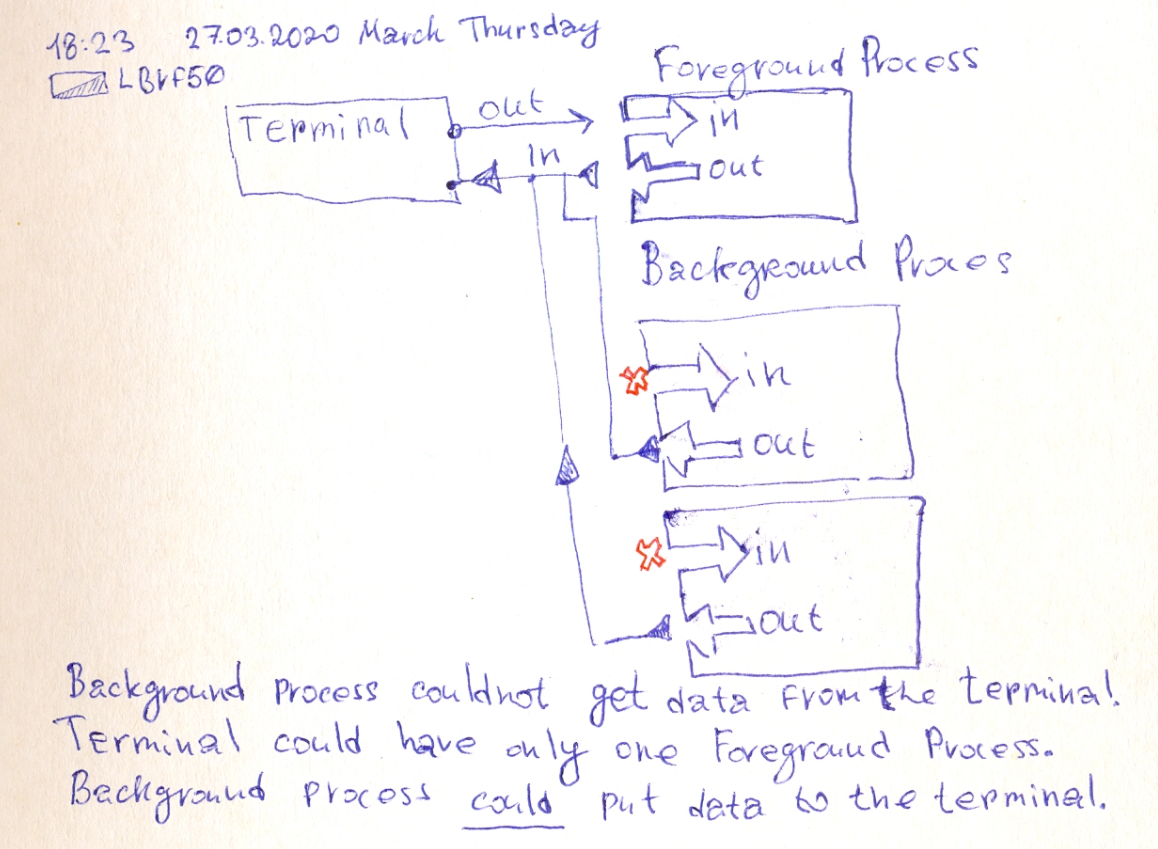 18:23 27.03.2020 March Thursday
LBVF50
Foreground Process
Terminal
out
in
In
out
Background Proces
in
out
in
out
Background process couldnot get data from the terminal.
Terminal could have only one Foreground Process.
Background process could put data to the terminal.